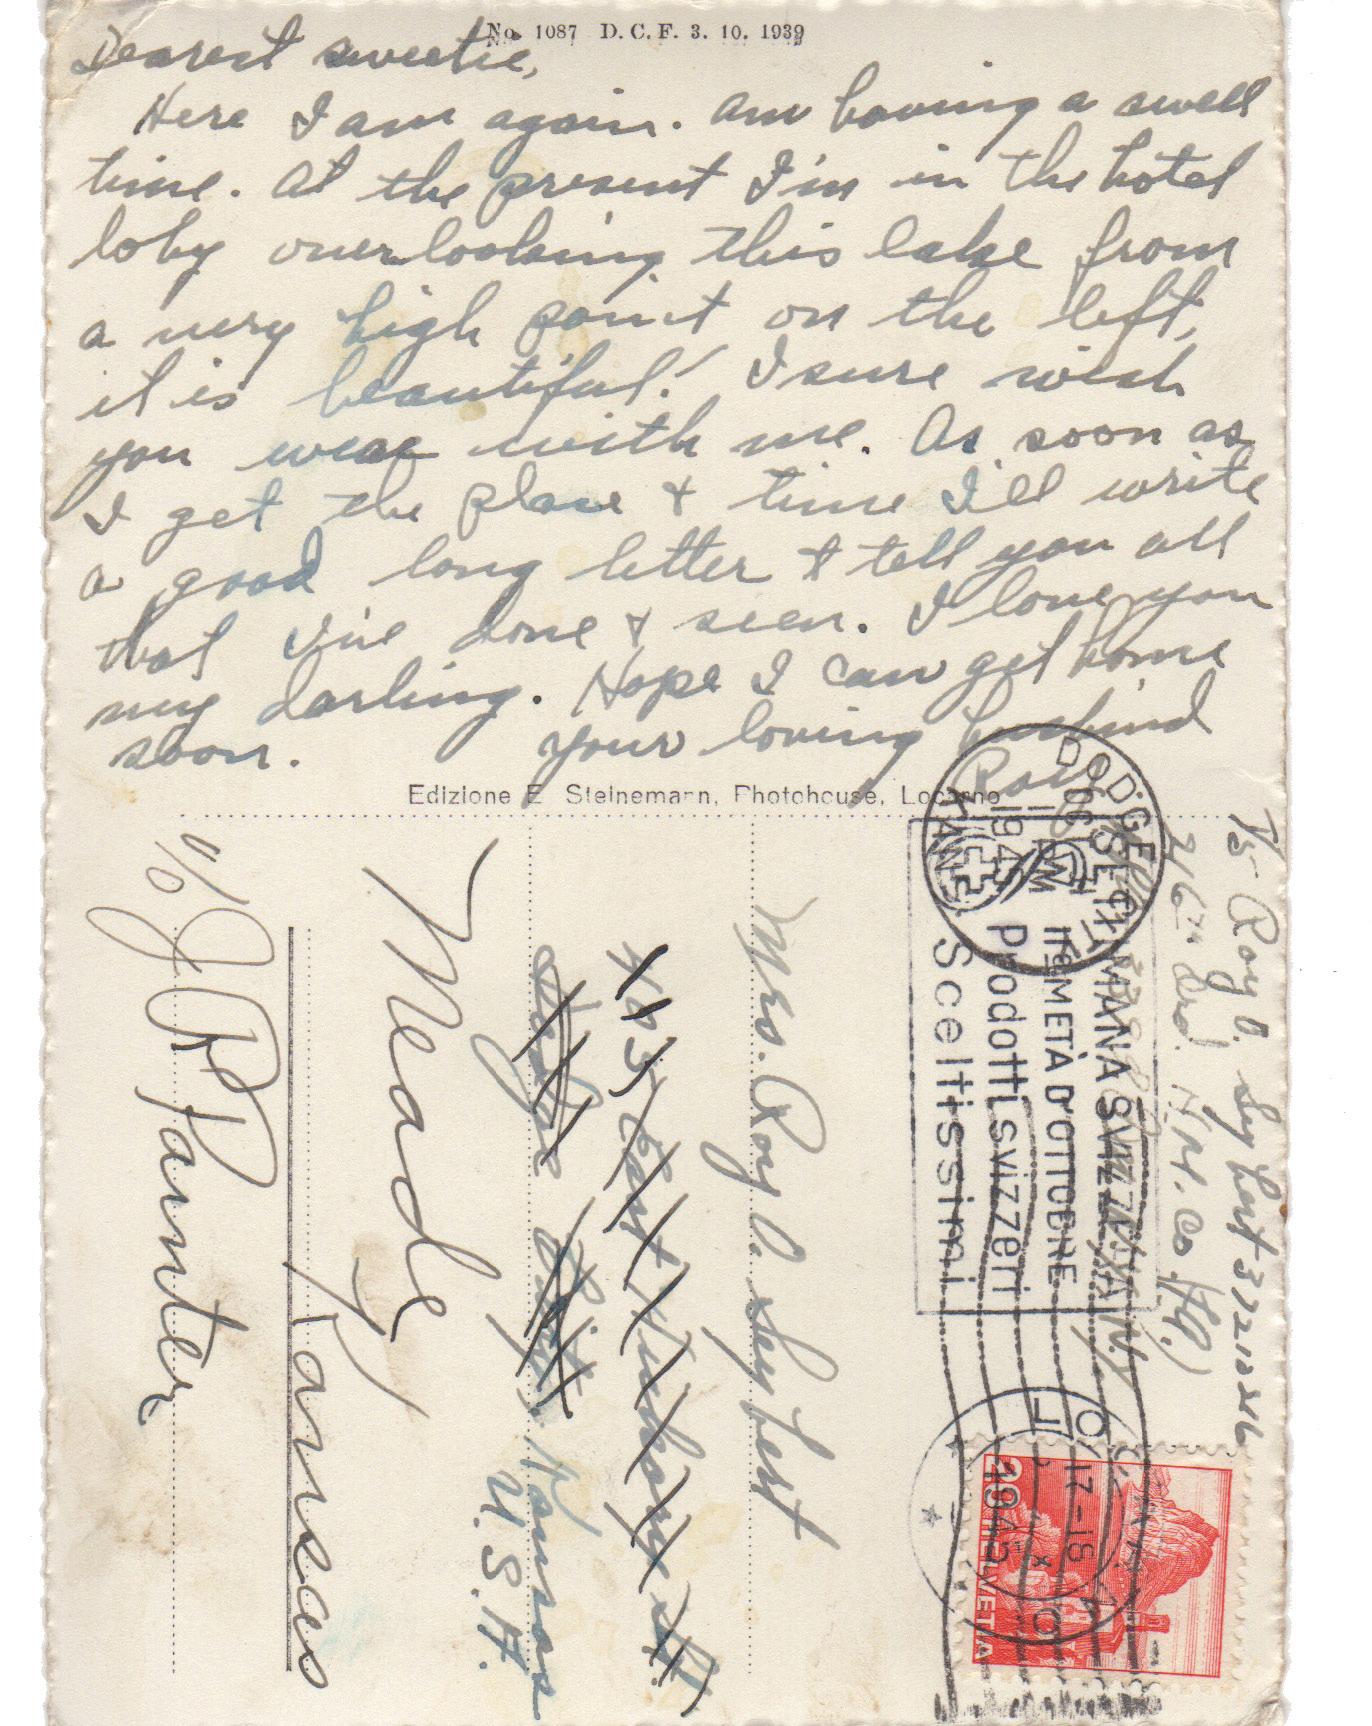 No. 1087 D. C. F. 3. 10. 1939
Dearest sweetie,
Here I am again. Am having a swell
time. At the present I'm in the hotel
loby overlooking this lake from
a very high point on the left,
it is beautiful! I sure wish
you were with me. As soon as
I get the place & time I'll write
a good long letter & tell you all
that I've done & seen. I love you
my darling. Hope I can get home
soon. your loving husbind
Roy
Edizione E. Steinemann, Photohouse, Locarno
Roy D.
H.M. Co.
DODGE
KANS.
1945
PM
SETTIMANA SVIZZERA
IIª METÀ D'OTTOBRE
Prodotti svizzeri
Sceltissimi
17-18
1945
20
HELVETIA
Mrs. Roy D.
403 East
Dodge City, Kansas
U.S.A.
Meade,
Kansas
c/o J R Painter